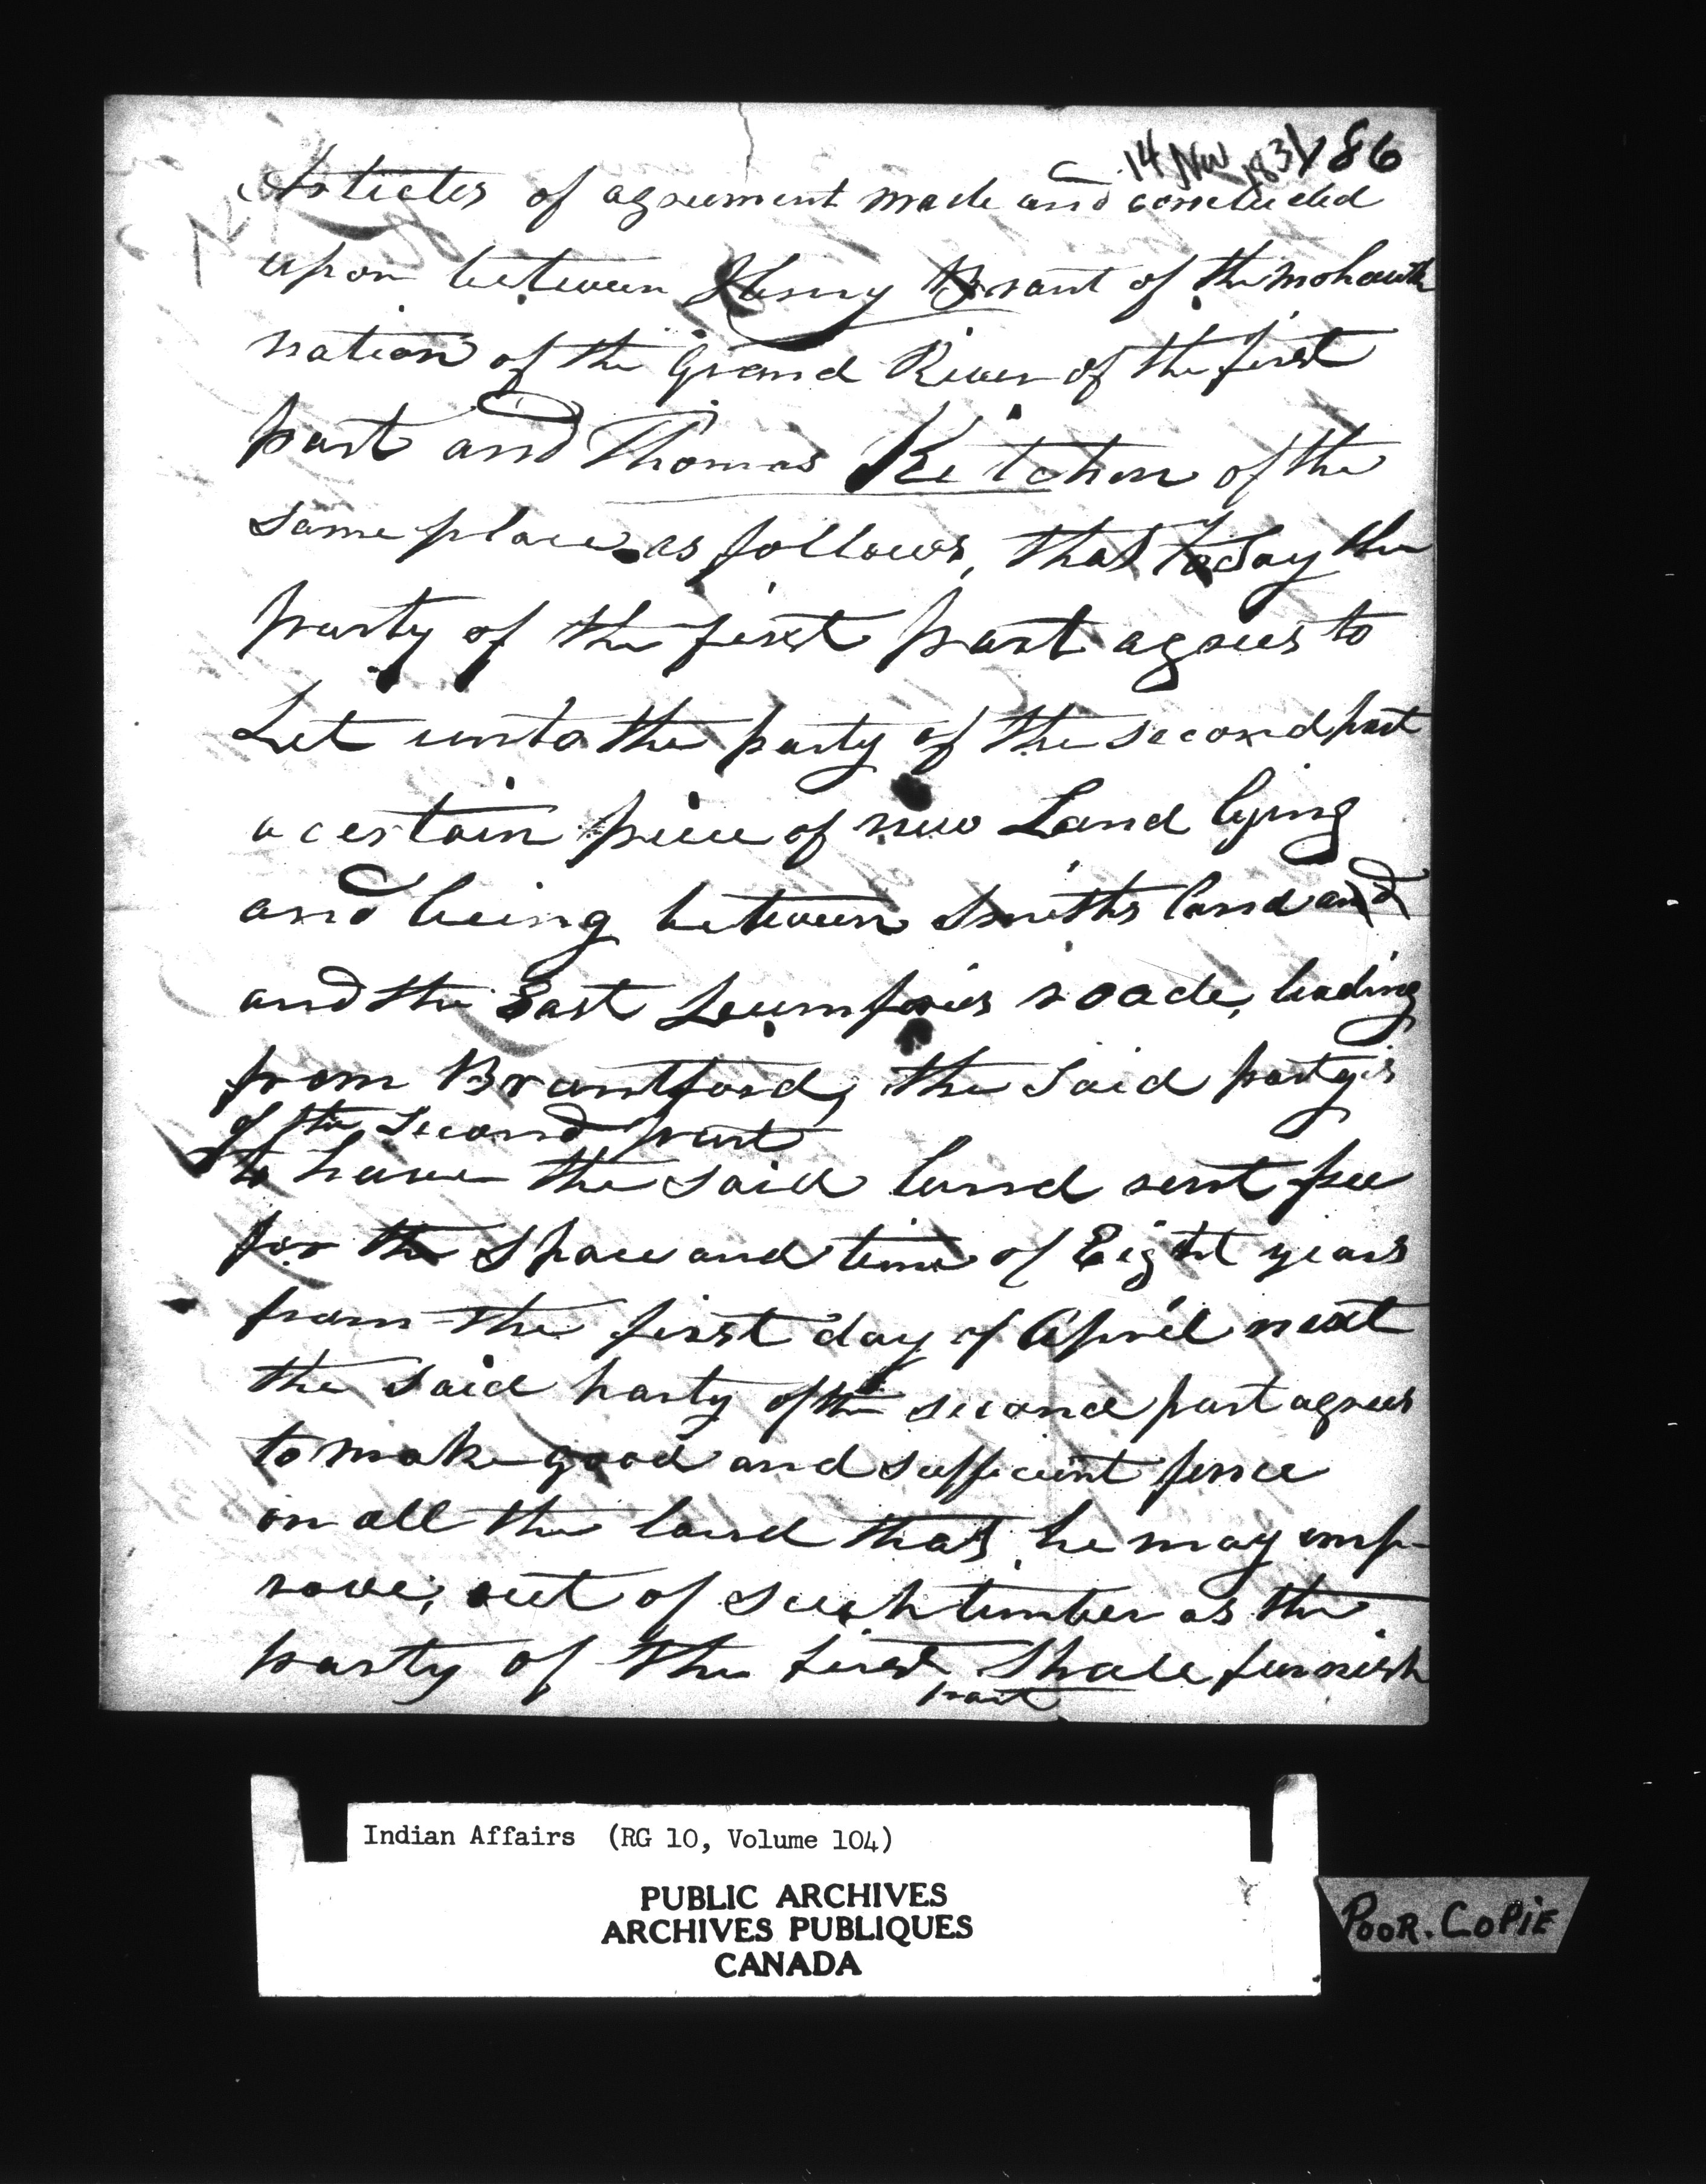 14 Nov 1831 86
Articles of agreement made and concluded
upon between Henry Brant of the mohawk
nation of the Grand River of the first
part and Thomas Kitchen of the
same place as follows, that to Say the
party of the first part agrees to
Let unto the party of the second part
a certain piece of new Land lying
and being between Smiths land and
and the East Dumfries roade, leading
from Brantford, the said party is
of the second part
to have the said land rent free
for the space and time of Eight years
from the first day of April next
the said party of the second part agrees
to make good and sufficient fence
on all the land that he may imp-
rove, out of such timber as the
party of the first shall furnish
part
Indian Affairs (RG 10, Volume 104)
PUBLIC ARCHIVES
ARCHIVES PUBLIQUES
CANADA
POOR. COPIE